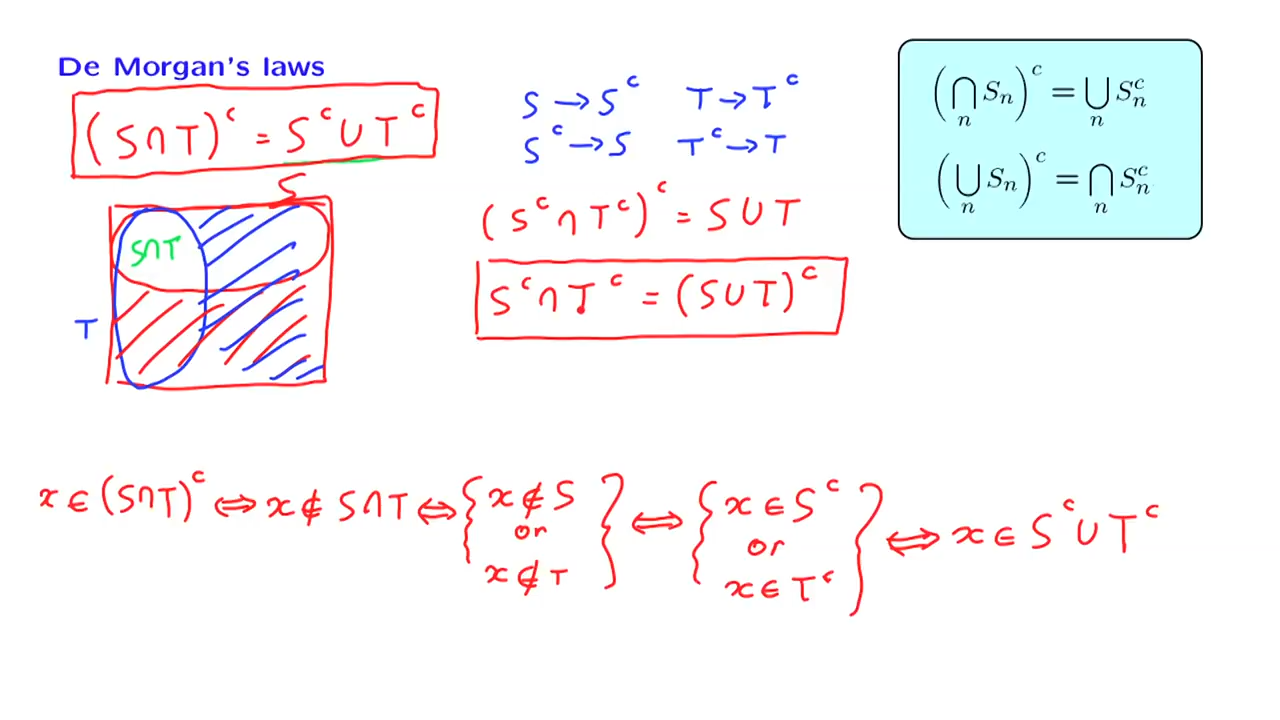 De Morgan's laws
(S∩T)ᶜ = Sᶜ∪Tᶜ
S
S∩T
T
S → Sᶜ T → Tᶜ
Sᶜ → S Tᶜ → T
(Sᶜ∩Tᶜ)ᶜ = S∪T
Sᶜ∩Tᶜ = (S∪T)ᶜ
(⋂ₙ Sₙ)ᶜ = ⋃ₙ Sₙᶜ
(⋃ₙ Sₙ)ᶜ = ⋂ₙ Sₙᶜ
x ∈ (S∩T)ᶜ ⇔ x ∉ S∩T ⇔ { x ∉ S
or
x ∉ T } ⇔ { x ∈ Sᶜ
or
x ∈ Tᶜ } ⇔ x ∈ Sᶜ∪Tᶜ